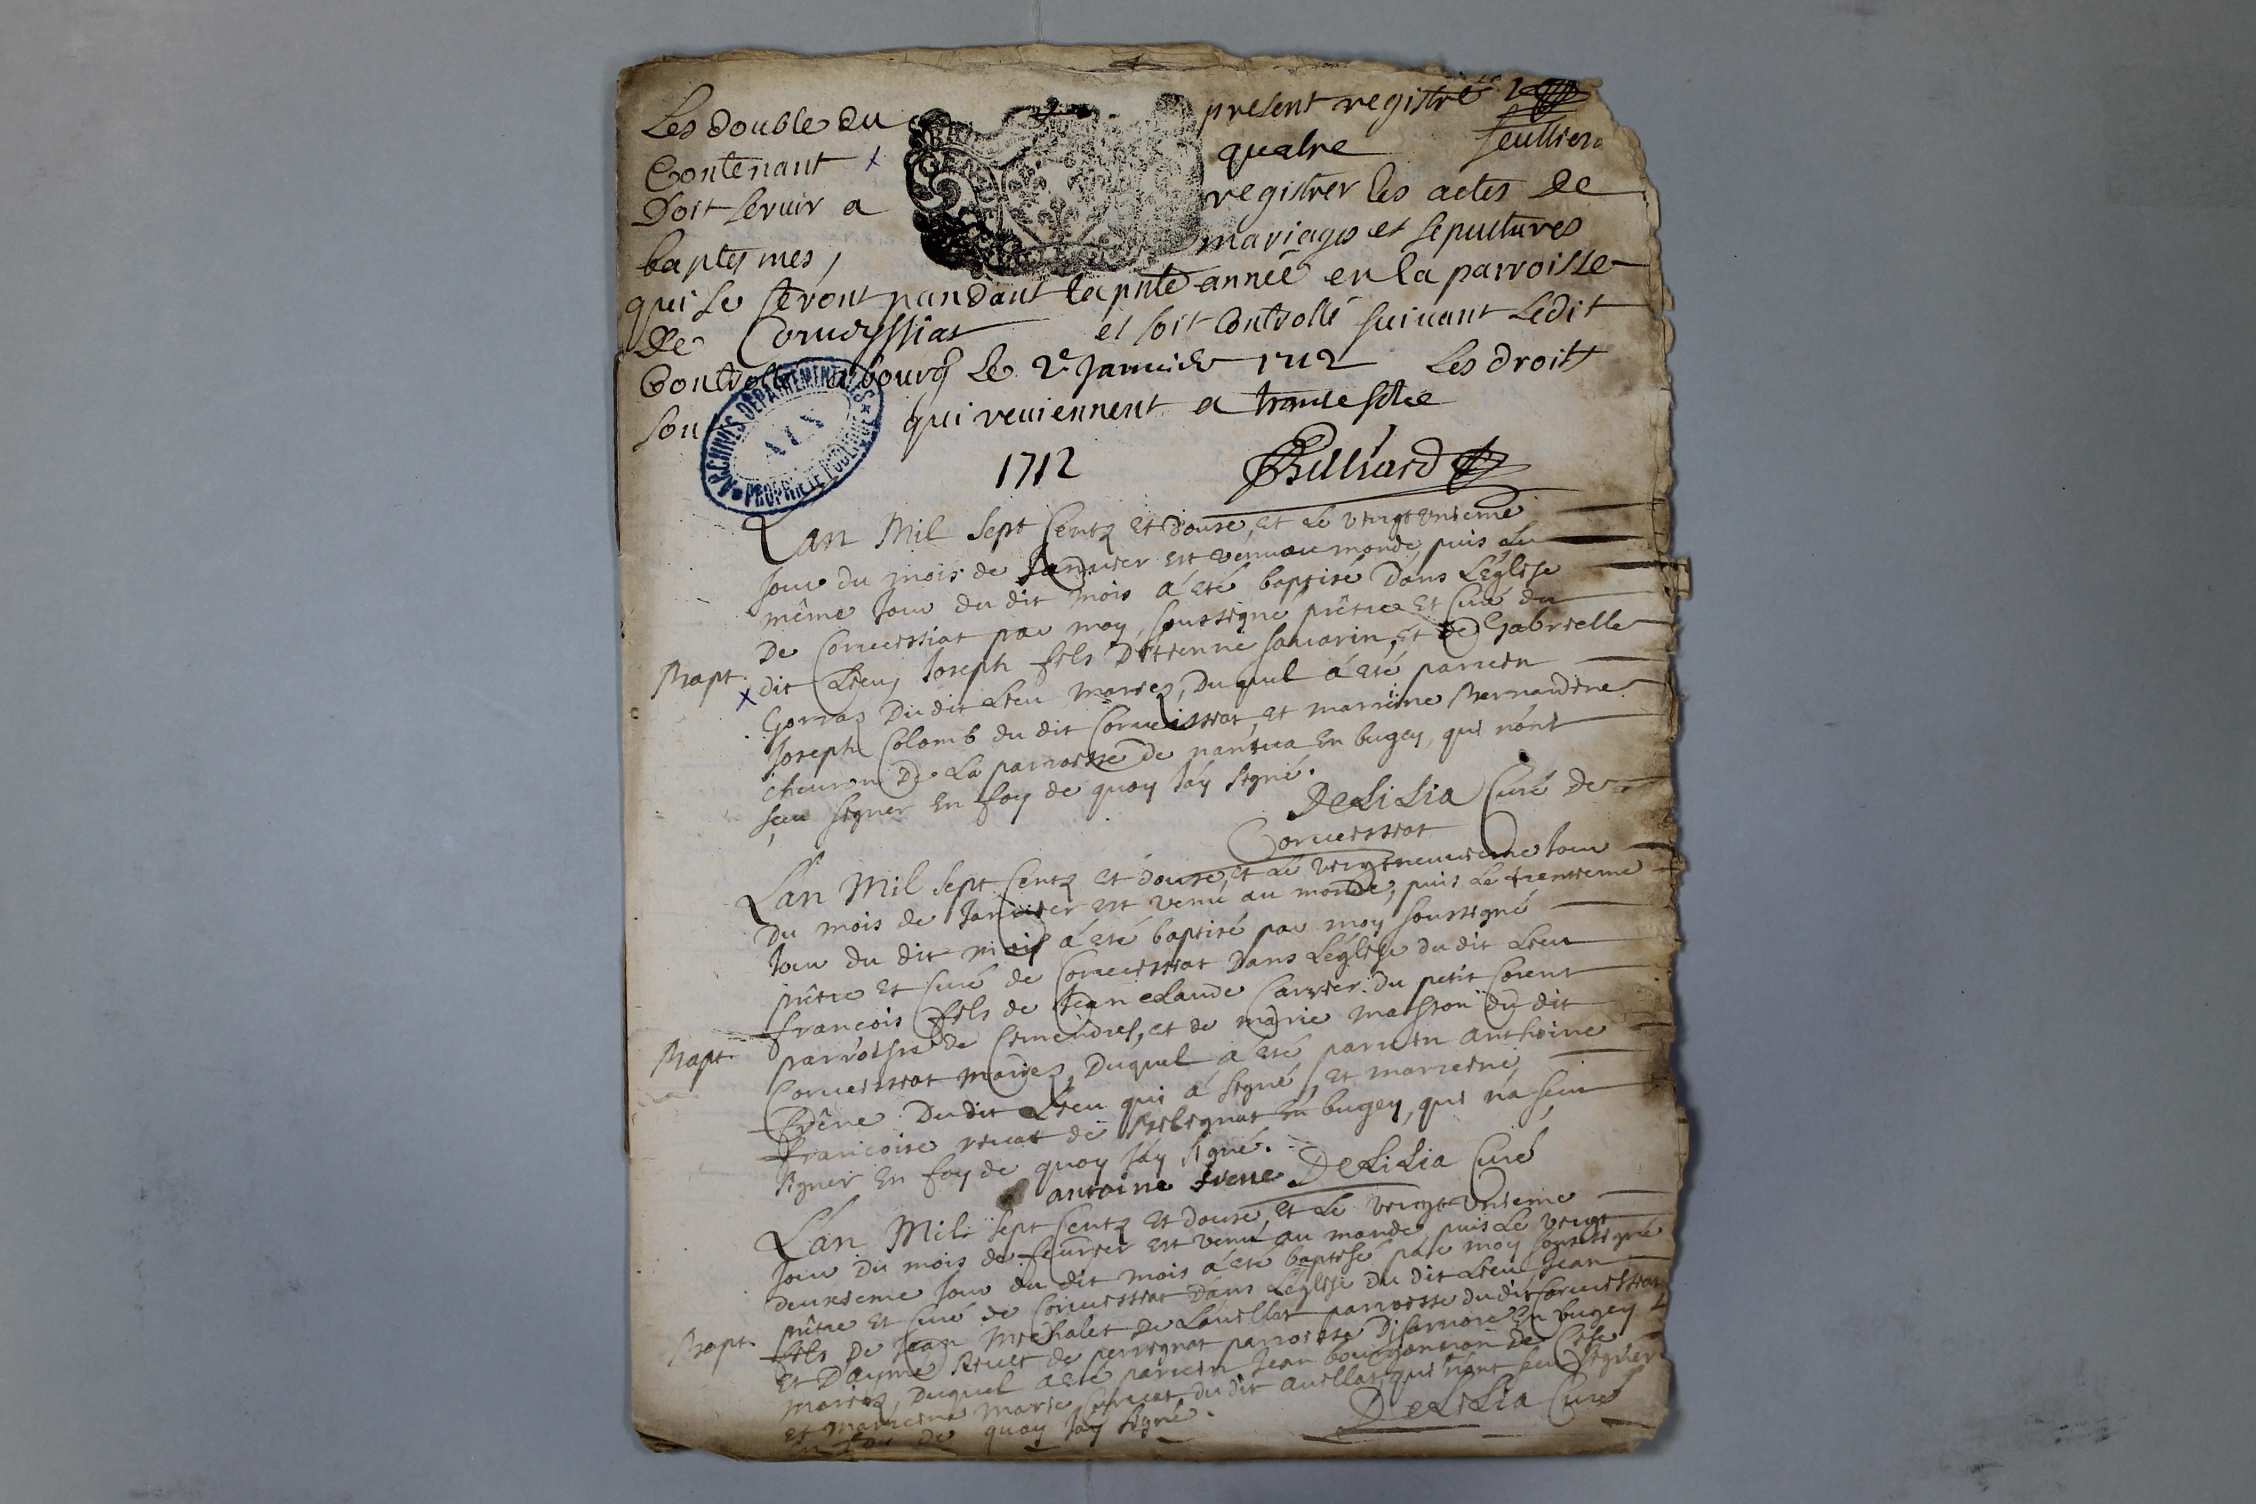 Les double du present registre
Contenant x quatre feulliers
Doit servir a registrer les actes de
baptesmes, mariages et sepultures
qui se feront pandant la pnte année en la parroisse
de Corveyssiat et soit controllé suivant Ledit
Controllé a bourg le 2e Janvier 1712 Les droits
son qui reviennent a
ARCHIVES DEPARTEMENTALES
AIN
PROPRIETE PUBLIQUE
1712 Billiard
Lan Mil Sept Centz et douse, et Le vingt unieme
Jour du mois de Janvier est venu au monde, puis Le
même Jour du dit mois á eté baptisé Dans L'église
De Corveissiat par moy, soussigné prêtre et Curé du
Bapt. x dit Lieu, Joseph fils D'étienne Savarin, et de Gabrielle
Gorraz Du dit Lieu mariez, Duquel á eté parrein
Joseph Colomb du dit Corveissiat, et marreine Bernardine
chevron De La parroisse de nantua En bugey, qui n'ont
sçeu signer En foy de quoy J'áy signé.
DeLiLia Curé de
Corveissiat
L'an Mil sept Centz et douse, et Le vingtneuvieme Jour
Du mois de Janvier est venu au monde, puis Le trentieme
Jour du dit mois á eté baptisé par moy soussigné
prêtre et Curé de Corveissiat Dans L'église du dit Lieu
francois fils de Jean claude Carrier du petit Corent
Bapt. parroisse de Simendres, et de marie Masson du dit
Corveissiat mariez, Duquel á eté parrein anthoine
frêne Du dit Lieu qui á signé, et marreine
francoise de En bugey, qui n'a seu
signer En foy de quoy J'áy signé.
antoine frene DeLiLia Curé
L'an Mil sept Centz et douse, et Le vingt unieme
Jour Du mois de fevrier est venu au monde, puis Le vingt
deuxieme Jour du dit mois á eté baptisé par moy soussigné
prêtre et Curé de Corveissiat Dans L'église Du dit Lieu Jean
Bapt. fils De Jean Michalet de Lavellat parroisse du dit Corveissiat
Et D'aymé de perrignat parroisse D'isarnore En bugey
mariez, Duquel a eté parrein Jean bourgognon de Cise
et marreine marie du dit avellat qui n'ont seu signer
En foy de quoy J'ay signé.
DeLiLia Curé